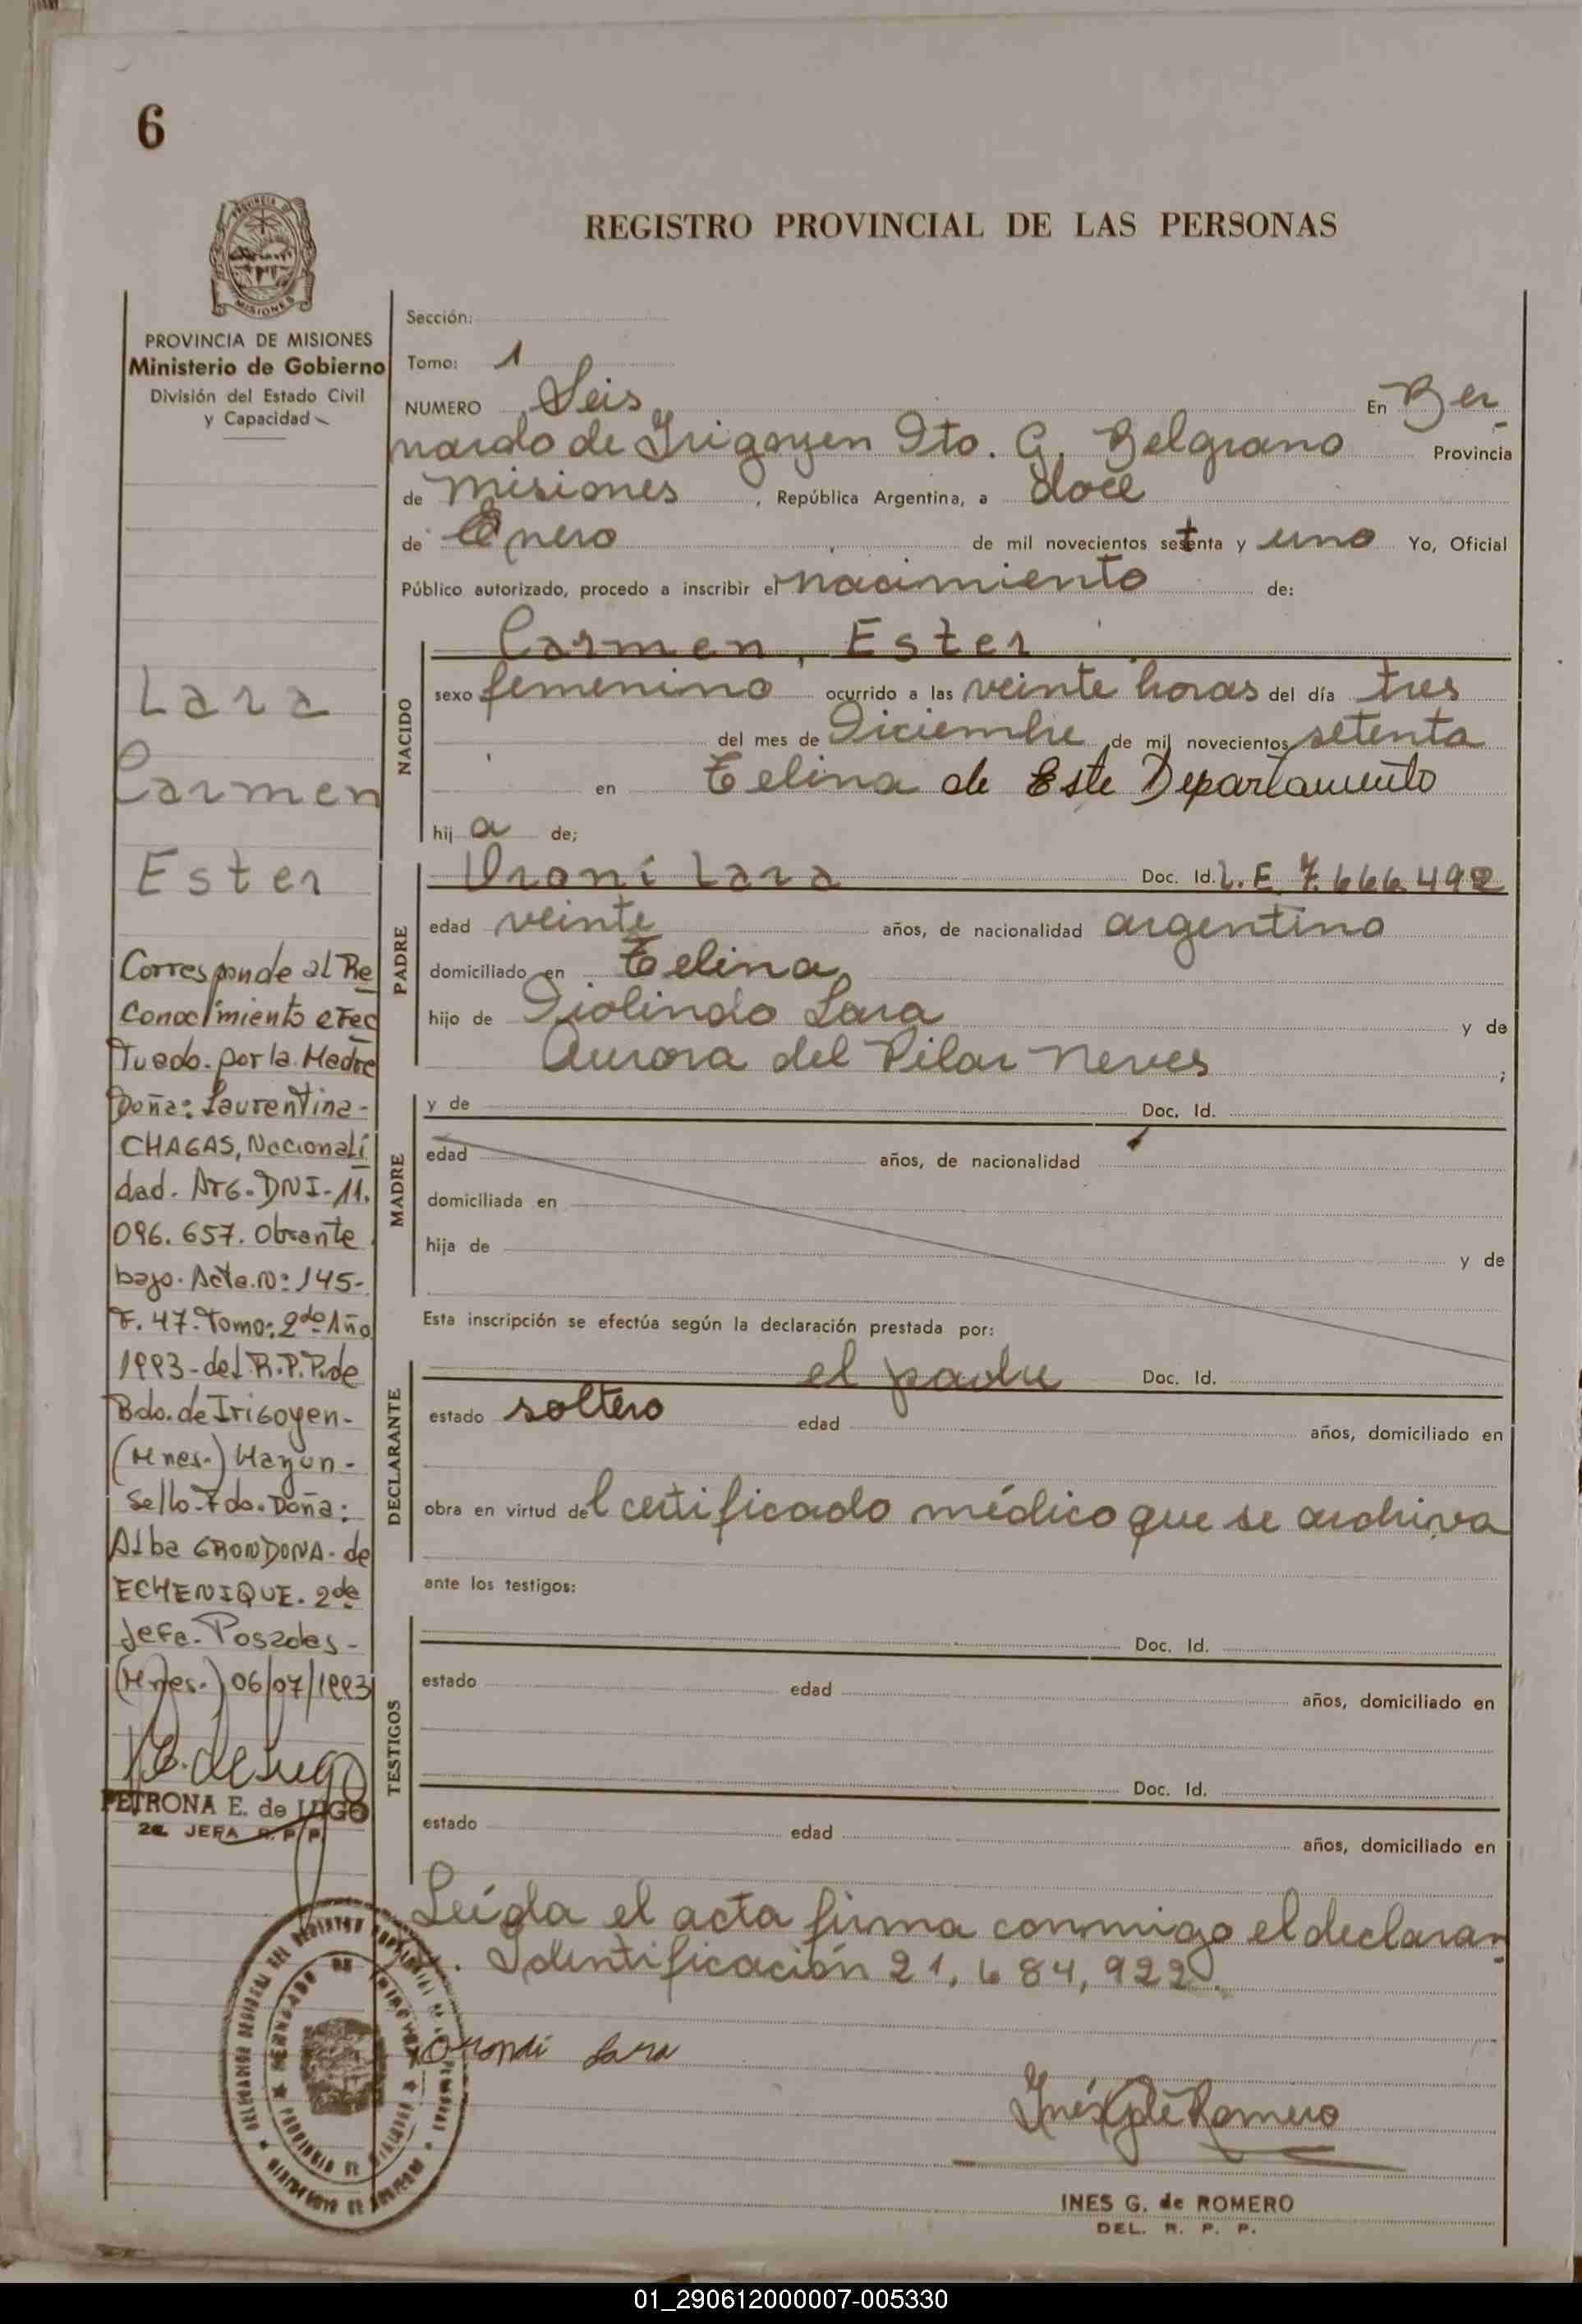 6
PROVINCIA DE
MISIONES
PROVINCIA DE MISIONES
Ministerio de Gobierno
División del Estado Civil
y Capacidad
REGISTRO PROVINCIAL DE LAS PERSONAS
Sección:
Tomo: 1
NUMERO Seis En Ber-
nardo de Irigoyen Dto. G. Belgrano Provincia
de Misiones, República Argentina, a doce
de Enero de mil novecientos setenta y uno Yo, Oficial
Público autorizado, procedo a inscribir el nacimiento de:
NACIDO
Carmen, Ester
sexo femenino ocurrido a las veinte horas del día tres
del mes de Diciembre de mil novecientos setenta
en Celina de Este Departamento
hij a de;
PADRE
Oroni Lara Doc. Id. L.E. 7.666.492
edad veinte años, de nacionalidad argentino
domiciliado en Celina
hijo de Diolindo Lara y de
Aurora del Pilar Neves ;
MADRE
y de Doc. Id.
edad años, de nacionalidad
domiciliada en
hija de y de
Esta inscripción se efectúa según la declaración prestada por:
DECLARANTE
el padre Doc. Id.
estado soltero edad años, domiciliado en
obra en virtud del certificado médico que se archiva
ante los testigos:
TESTIGOS
Doc. Id.
estado edad años, domiciliado en
Doc. Id.
estado edad años, domiciliado en
Leída el acta firma conmigo el declaran-
Identificación 21.684,922.
Lara
Inés G de Romero
INES G. de ROMERO
DEL. R. P. P.
Lara
Carmen
Ester
Corresponde al Re
conocimiento efec
tuado. por la. Madre
Doña: Laurentina-
CHAGAS, Nacionali
dad. Arg. DNI-11.
096.657. Obrante
bajo. Acta. Nº: 145-
F. 47. Tomo: 2do Año
1993-del R.P.P. de
Bdo. de Irigoyen-
(Mnes.) Hay un-
Sello. Fdo. Doña:
Alba GRONDONA. de
ECHENIQUE. 2da
Jefa. Posadas-
(Mnes.) 06/07/1993
PETRONA E. de LUGO
2a. JEFA R. P. P.
01_290612000007-005330